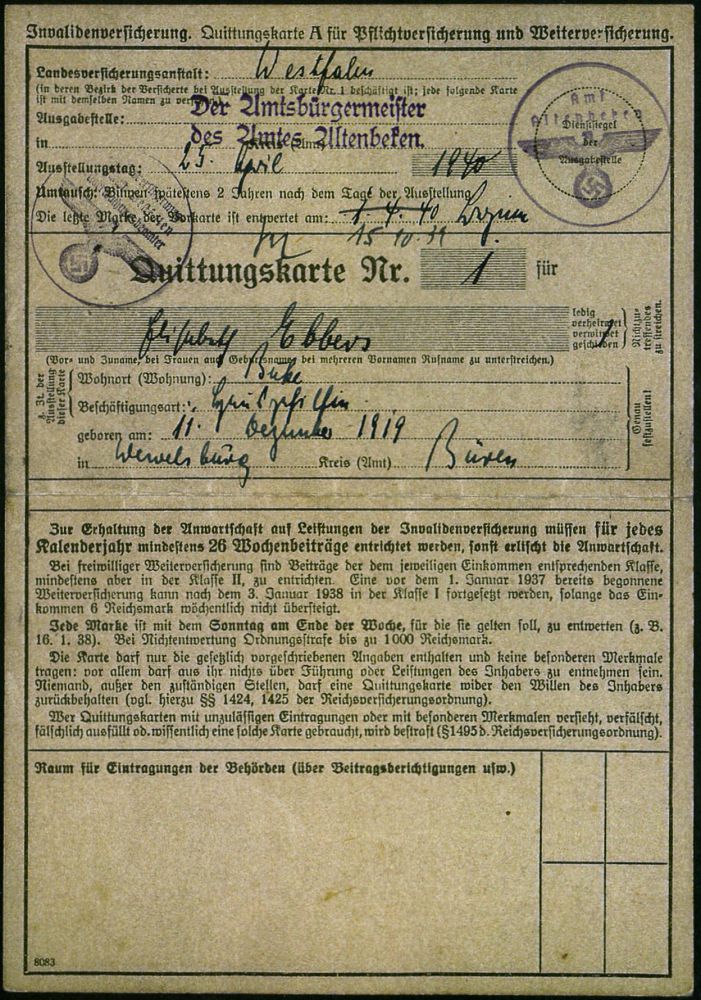 Invalidenversicherung. Quittungskarte A für Pflichtversicherung und Weiterversicherung.
Landesversicherungsanstalt: Westfalen
(in deren Bezirk der Versicherte bei Ausstellung der Karte Nr. 1 beschäftigt ist; jede folgende Karte
ist mit demselben Namen zu
Der Amtsbürgermeister
Ausgabestelle:
des Amtes Altenbeken.
in Kreis (Amt)
Amt
Altenbeken
Dienstsiegel
der
Ausgabestelle
Ausstellungstag: 25. April 1940
Umtausch: Binnen spätestens 2 Jahren nach dem Tage der Ausstellung
Die letzte Marke der Vorkarte ist entwertet am: 1. 4. 40
15. 10. 39
Quittungskarte Nr. 1 für
Elisabeth Ebbers
ledig
verheiratet
verwitwet
geschieden
Nichtzu-
treffendes
zu streichen.
(Vor- und Zuname, bei Frauen auch Geburtsname, bei mehreren Vornamen Rufname zu unterstreichen.)
z. Zt. der
Ausstellung
dieser Karte
Wohnort (Wohnung): Buke
Beschäftigungsart:
geboren am: 11. Dezember 1919
in Wewelsburg Kreis (Amt) Büren
Genau
festzustellen!
Zur Erhaltung der Anwartschaft auf Leistungen der Invalidenversicherung müssen für jedes
Kalenderjahr mindestens 26 Wochenbeiträge entrichtet werden, sonst erlischt die Anwartschaft.
Bei freiwilliger Weiterversicherung sind Beiträge der dem jeweiligen Einkommen entsprechenden Klasse,
mindestens aber in der Klasse II, zu entrichten. Eine vor dem 1. Januar 1937 bereits begonnene
Weiterversicherung kann nach dem 3. Januar 1938 in der Klasse I fortgesetzt werden, solange das Ein-
kommen 6 Reichsmark wöchentlich nicht übersteigt.
Jede Marke ist mit dem Sonntag am Ende der Woche, für die sie gelten soll, zu entwerten (z. B.
16. 1. 38). Bei Nichtentwertung Ordnungsstrafe bis zu 1000 Reichsmark.
Die Karte darf nur die gesetzlich vorgeschriebenen Angaben enthalten und keine besonderen Merkmale
tragen: vor allem darf aus ihr nichts über Führung oder Leistungen des Inhabers zu entnehmen sein.
Niemand, außer den zuständigen Stellen, darf eine Quittungskarte wider den Willen des Inhabers
zurückbehalten (vgl. hierzu §§ 1424, 1425 der Reichsversicherungsordnung).
Wer Quittungskarten mit unzulässigen Eintragungen oder mit besonderen Merkmalen versieht, verfälscht,
fälschlich ausfüllt od. wissentlich eine solche Karte gebraucht, wird bestraft (§ 1495 d. Reichsversicherungsordnung).
Raum für Eintragungen der Behörden (über Beitragsberichtigungen usw.)
8083